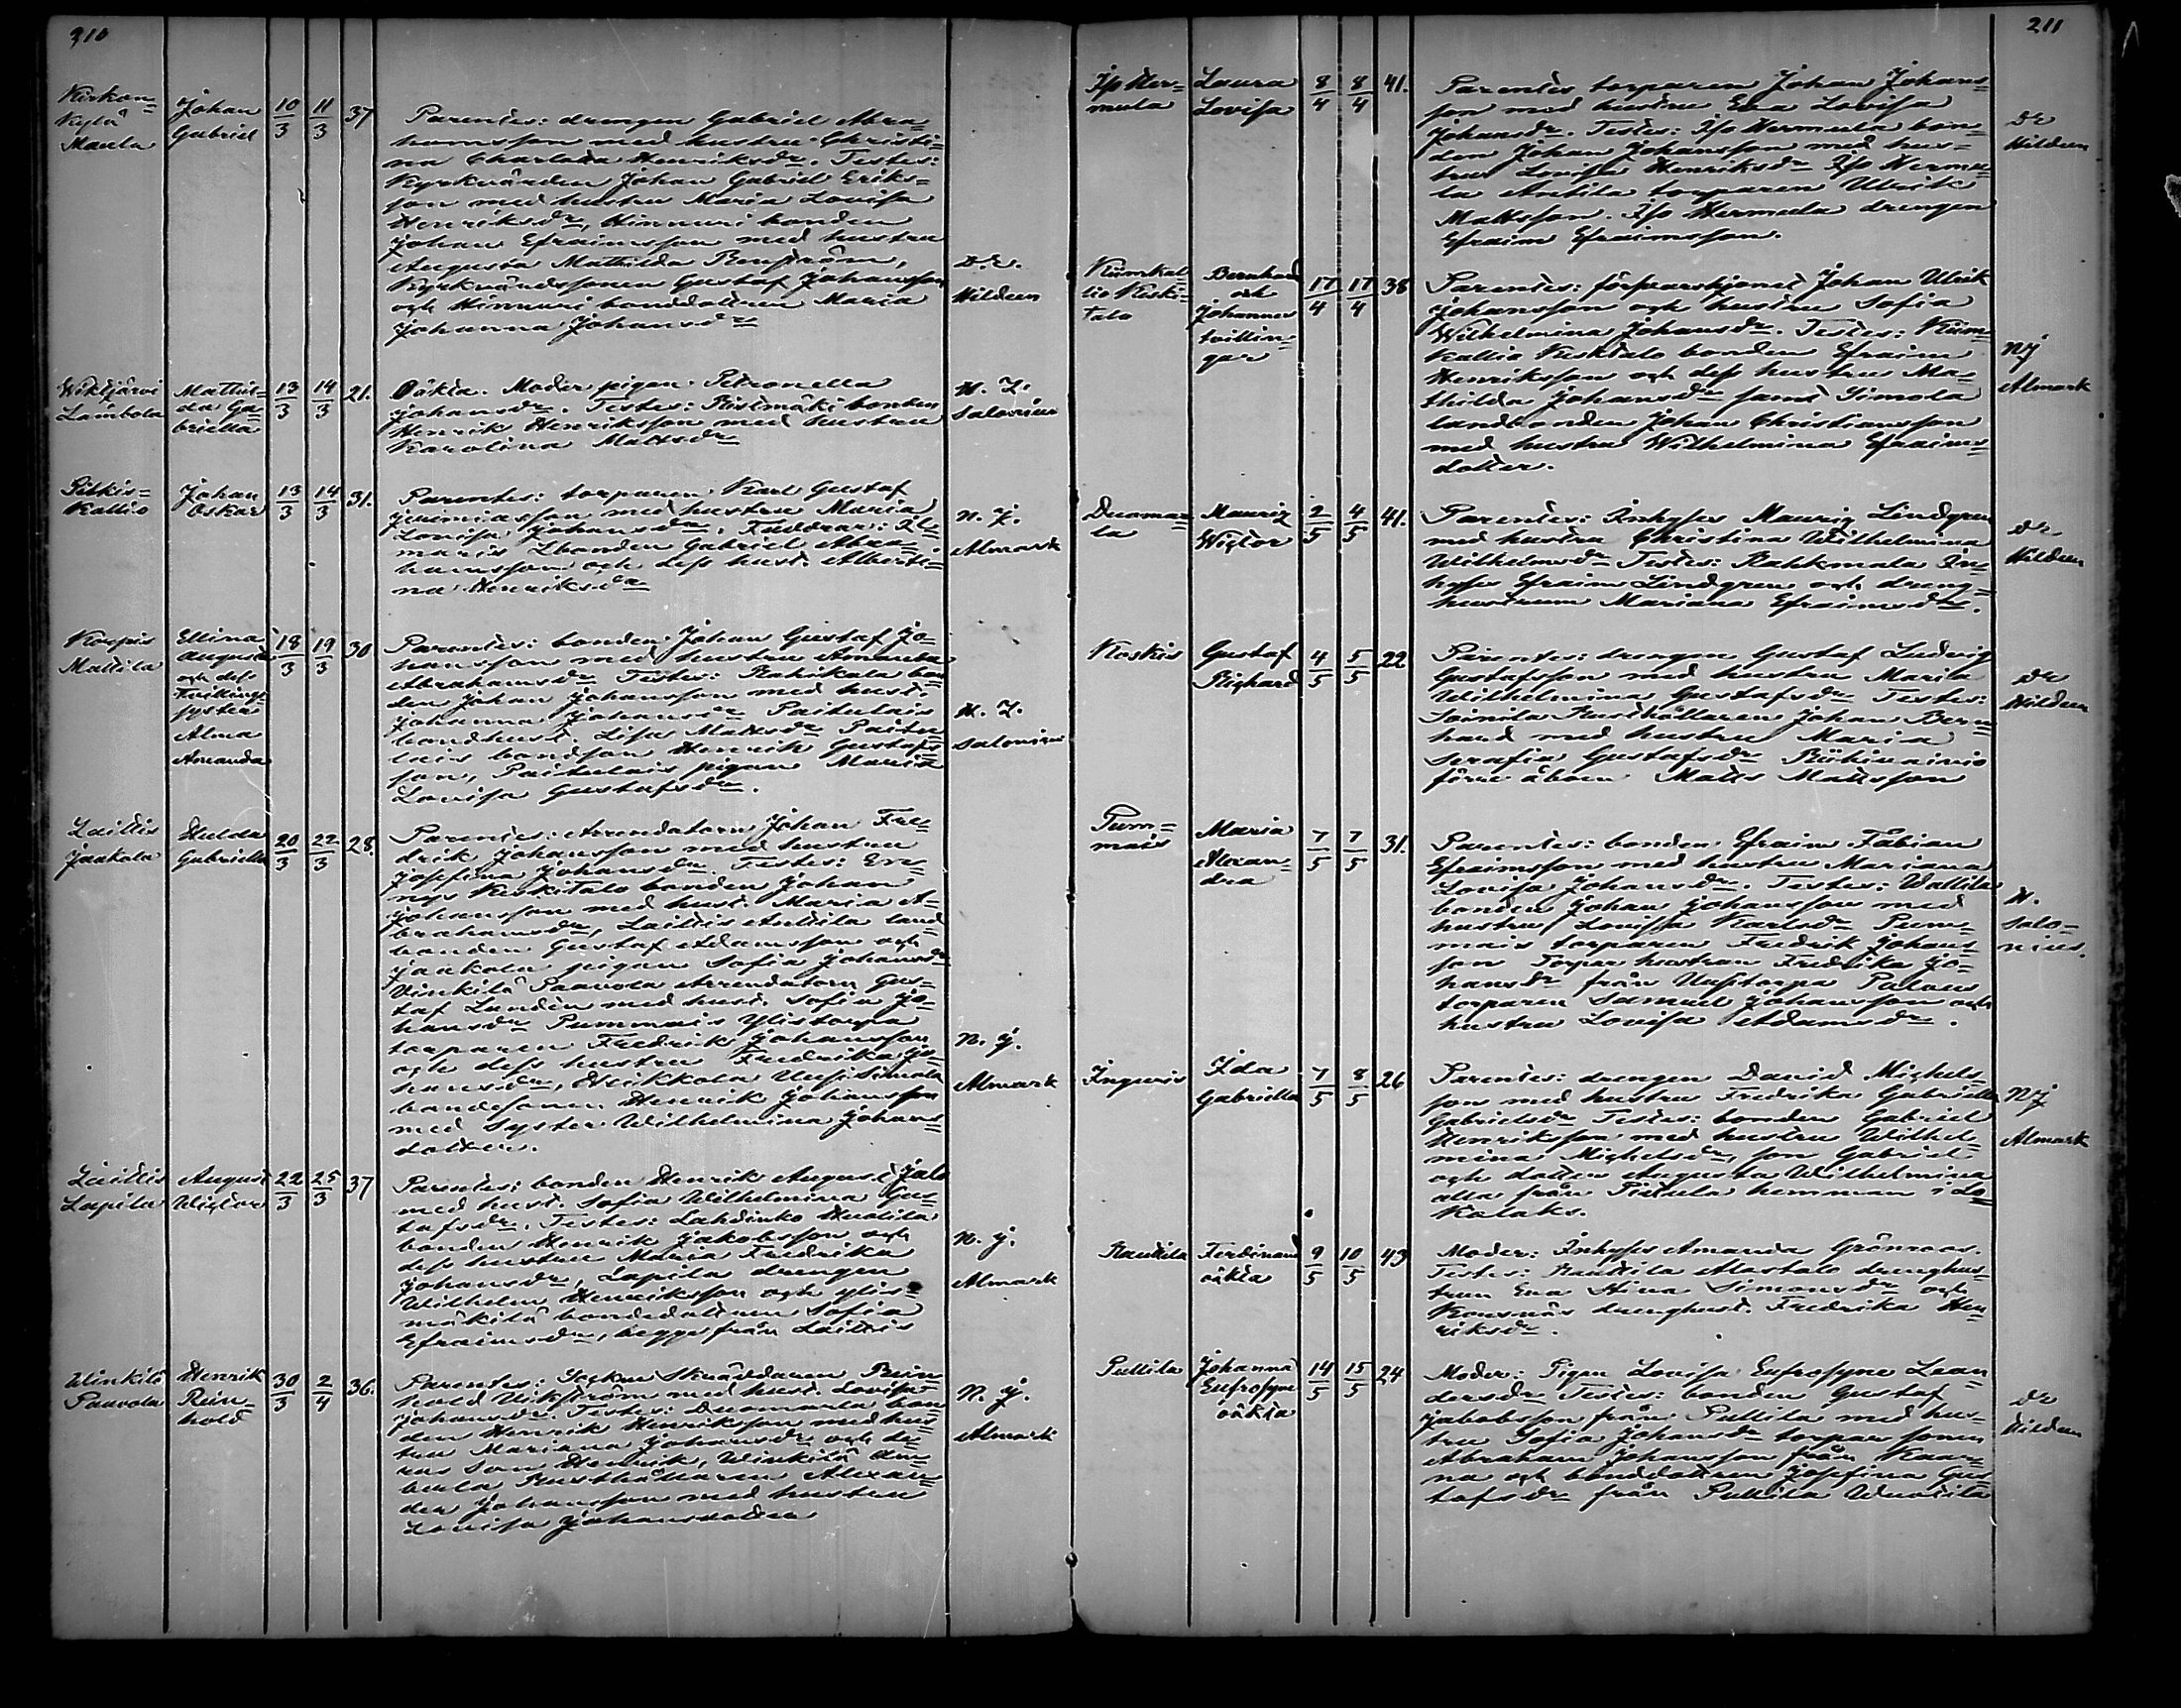 210
Kirkon=
kylä
Maula
Johan
Gabriel
10/3
11/3
37
Parentes: drengen Gabriel Abra=
hamsson med hustru Christi=
na Charlotta Henriksdr. Testes:
Kyrkvärden Johan Gabriel Eriks=
son med hustru Maria Lovisa
Henriksdr, Hinnuri bonden
Johan Efraimsson med hustru
Augusta Mathilda Renström,
Kyrkvärdssonen Gustaf Johansson
och Hinnuri bonddottren Maria
Johanna Johansdr
D. E.
Hildeen
Wiktjärvi
Lambola
Mathil=
da Ga=
briella
13/3
14/3
21.
Oäkta. Moder pigan Petronella
Johansdr. Testes: Ristmäki bonden
Henrik Henriksson med hustru
Karolina Mattsdr
H. L.
Salonius
Pitkis=
kallio
Johan
Oskar
13/3
14/3
31.
Parentes: torparen Karl Gustaf
Jeremiasson med hustru Maria
Lovisa Johansdr. Faddrar:
bonden Gabriel Abra=
hamsson och dess hust. Alberti=
na Henriksdr
N. J.
Almark
Korpis
Mattila
Ellina
Augusta
och dess
tvillings
syster
Alma
Amanda
18/3
19/3
30
Parentes: bonden Johan Gustaf Jo=
hansson med hustru Amanda
Abrahamsdr Testes: Rahikala bon
den Johan Johansson med hust.
Johanna Johansdr Paitulais
bondhust. Lisa Mattsdr Paitu=
lais bondson Henrik Gustafs=
son, Paitulais pigan Maria
Lovisa Gustafsdr.
H. L.
Salonius
Laittis
Jaakola
Hulda
Gabriella
20/3
22/3
28.
Parentes: Arrendatorn Johan Fre=
drik Johansson med hustru
Josefina Johansdr. Testes: Er=
nys Keskitalo bonden Johan
Johansson med hust. Maria A=
brahamsdr, Laittis Anttila land
bonden Gustaf Adamsson och
Jaakola pigan Sofia Johansdr
Vinkilä Paavola Arrendatorn Gus=
taf Lundén med hust. Sofia Jo=
hansdr Pummais Ylistorpa
torparen Fredrik Johansson
och dess hustru Fredrika Jo=
hansdr, Heikkola Uusi Simola
bondesonen Henrik Johansson
med Syster Wilhelmina Johans=
dotter.
N. J.
Almark
Laittis
Lapila
August
Wictor
22/3
25/3
37
Parentes: bonden Henrik August Jalo
med hust. Sofia Wilhelmina Gus=
tafsdr. Testes: Lahdinko Huttila
bonden Henrik Jakobsson och
dess hustru Maria Fredrika
Johansdr, Lapila drengen
Wilhelm Henriksson och Ylis=
mäkilä bondedottren Sofia
Efraimsdr, begge från Laittis
N. J.
Almark
Winkilä
Paavola
Henrik
Rein=
hold
30/3
2/4
36.
Parentes: Socken Skräddaren Rein
hold Wikström med hust. Lovisa
Johansdr. Testes: Duomarla bon=
den Henrik Henriksson med hus=
tru Mariana Johansdr och de=
ras Son Henrik, Winkilä An=
tula Rusthållaren Alexan=
der Johansson med hustru
Lovisa Johansdotter
N. J.
Almark
211
Iso Her=
mula
Laura
Lovisa
8/4
8/4
41.
Parentes torparen Johan Johans=
son med hustru Eva Lovisa
Johansdr. Testes: Iso Hermula bon=
den Johan Johansson med hus=
tru Lovisa Henriksdr Iso Hermu=
la Antila torparen Ulrik
Mattsson. Iso Hermula drengen
Efraim Efraimsson.
DE
Hildeen
Kiimkal
lio Keski=
talo
Bernhard
och
Johannes
tvillin=
gar
17/4
17/4
38
Parentes: förparskjonet Johan Ulrik
Johansson och hustru Sofia
Wilhelmina Johansdr. Testes: Kiim=
kallio Keskitalo bonden Efraim
Henriksson och dess hustru Ma=
thilda Johansdr samt Simola
landbonden Johan Christiansson
med hustru Wilhelmina Efraims=
dotter.
NJ
Almark
Duomar=
la
Mauriz
Wictor
2/5
4/5
41.
Parentes: Inhyses Mauriz Lindgren
med hustru Christina Wilhelmina
Wilhelmsdr Testes: Rahkmala In=
hyses Efraim Lindgren och dreng=
hustrun Mariana Efraimsdr.
DE
Hildeen
Koskis
Gustaf
Richard
4/5
5/5
22
Parentes: drengen Gustaf Ludvig
Gustafsson med hustru Maria
Wilhelmina Gustafsdr Testes:
Soinila Rusthållaren Johan Bern=
hard med hustru Maria
Serafia Gustafsdr Riihivainio
förre åboen Matts Mattsson
DE
Hildeen
Pum=
mais
Maria
Alexan=
dra
7/5
7/5
31.
Parentes: bonden Efraim Fabian
Efraimsson med hustru Mariana
Lovisa Johansdr. Testes: Wallila
bonden Johan Johansson med
hustru Lovisa Karlsdr Pum=
mais torparen Fredrik Johans=
son Torpar hustrun Fredrika Jo=
hansdr från Uusitorpa Palaus
torparen Samuel Johansson och
hustru Lovisa Adamsdr.
H.
Salo=
nius.
Inguris
Ida
Gabriella
7/5
8/5
26
Parentes: drengen David Michels=
son med hustru Fredrika Gabriella
Gabrielsdr Testes: bonden Gabriel
Henriksson med hustru Wilhel=
mina Michelsdr, son Gabriel
och dotter Augusta Wilhelmina
alla från Pietula hemman i Lo=
kalaks.
NJ
Almark
Rautila
Ferdinand
oäkta
9/5
10/5
43
Moder: Inhyses Amanda Grönroos.
Testes: Rautila Alastalo drenghus=
trun Eva Stina Simonsdr och
Konsnäs drenghust. Fredrika Hen
riksdr.
Pultila
Johanna
Eufrosyne
oäkta
14/5
15/5
24
Moder: Pigan Lovisa Eufrosyne Lean
dersdr Testes: bonden Gustaf
Jakobsson från Pultila med hus=
tru Sofia Johansdr torpar sonen
Abraham Johansson från Kaar=
na och bonddottren Josefina Gus=
tafsdr från Pultila Wuotila
DE
Hildeen